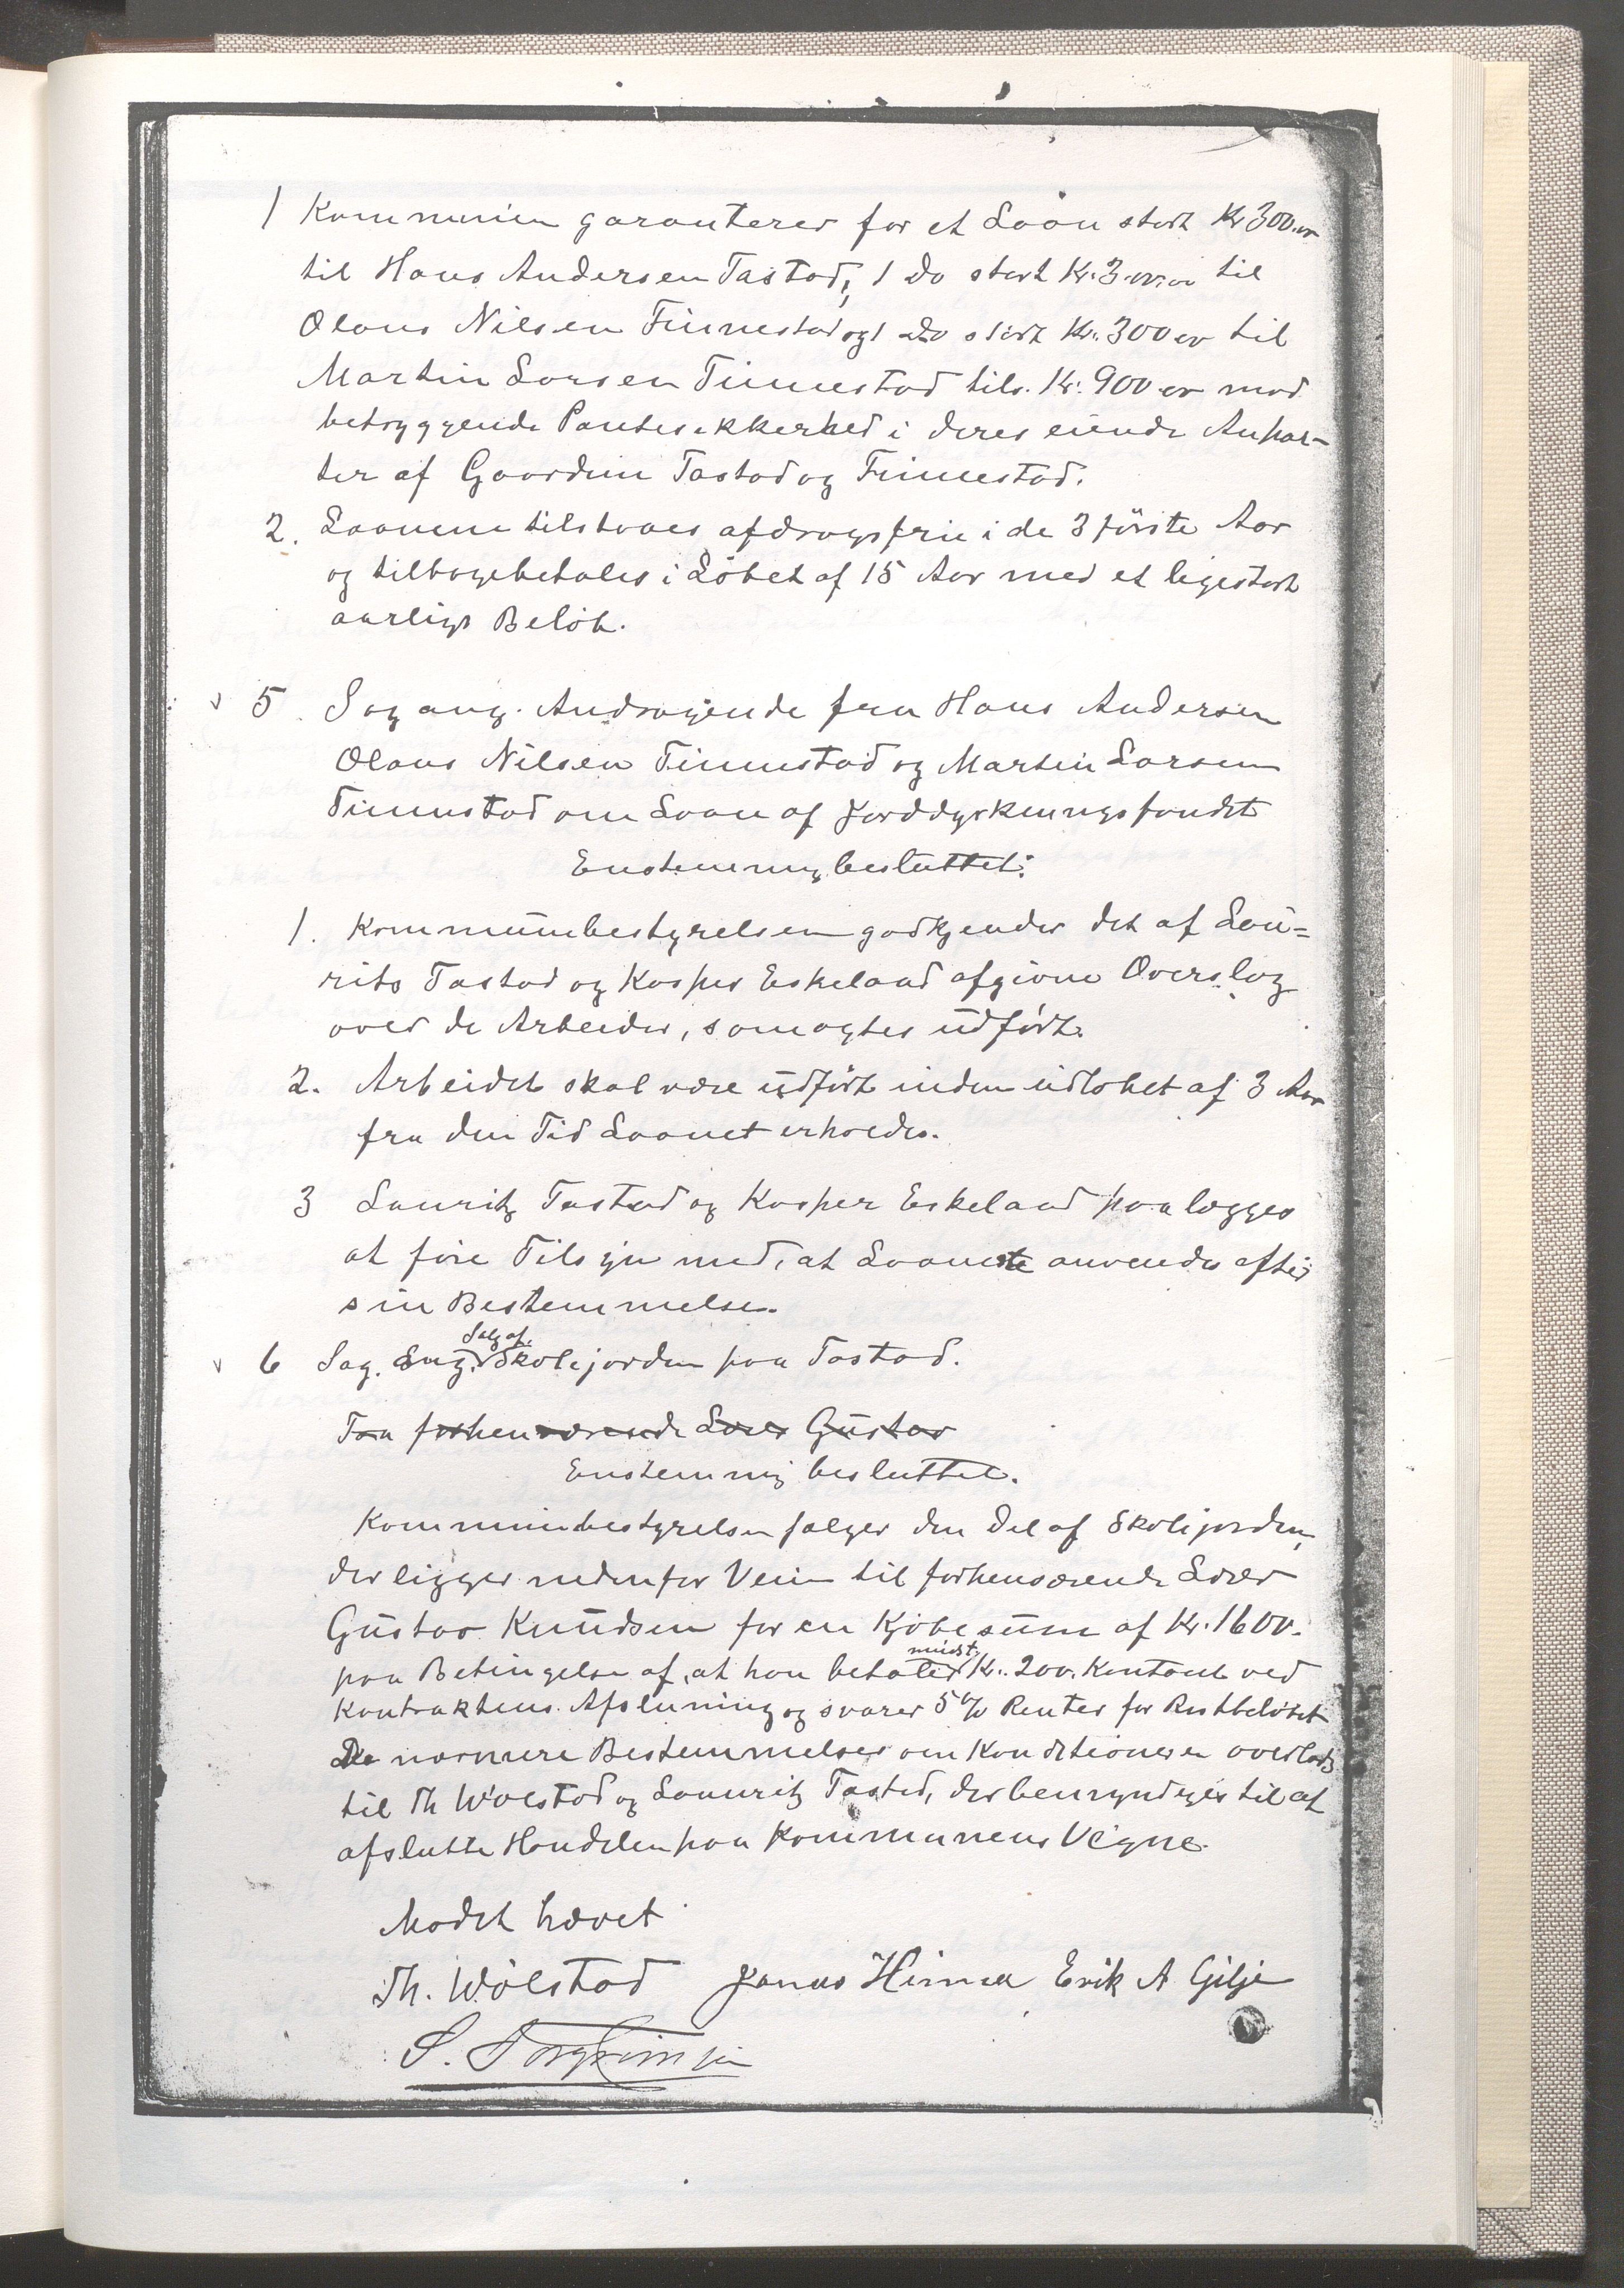 1 Kommunen garanterer for et Laan stort Kr 300.00
til Hans Andersen Tastad, 1 Do stort Kr. 300.00 til
Olaus Nilsen Finnestad og 1 Do stort Kr. 300 00 til
Martin Larsen Finnestad tils. Kr. 900 00 mod
betryggende Pantesikkerhed i deres eiende Anpar-
ter af Gaardene Tastad og Finnestad.
2. Laanene tilstaaes afdragsfrie i de 3 første Aar
og tilbagebetales i Løbet af 15 Aar med et ligestort
aarligt Beløb.
5. Sag ang. Andragende fra Hans Andersen
Olaus Nilsen Finnestad og Martin Larsen
Finnestad om Laan af Jorddyrkningsfondet
Enstemmig besluttet:
1. Kommunebestyrelsen godkjender det af Lau=
rits Tastad og Kasper Eskeland afgivne Overslag
over de Arbeider, som agtes udført.
2. Arbeidet skal være udført inden udløbet af 3 Aar
fra den Tid Laanet erholdes.
3 Lauritz Tastad og Kasper Eskeland paalægges
at føre Tilsyn med, at Laanet anvendes efter
sin Bestemmelse.
6 Sag. Ang. Salg af. Skolejorden paa Tastad.
Fra forhenværende Lærer Gustav
Enstemmig besluttet.
Kommunebestyrelsen sælger den Del af Skolejorden,
der ligger nedenfor Veien til forhenværende Lærer
Gustav Knudsen for en Kjøbesum af Kr. 1600.
paa Betingelse af, at han betaler mindst Kr. 200. Kontant ved
Kontraktens Afslutning og svarer 5% Renter for Restbeløbet
De nærmere Bestemmelser om Konditionerne overlades
til Th Wølstad og Lauritz Tastad, der bemyndiges til at
afslutte Handelen paa Kommunens Vegne.
Mødet hævet
Th. Wølstad Jonas Hinna Erik A Gilje
S. Torgrimsen